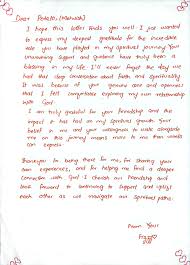 Dear Potato, (Mahwish)
I hope this letter finds you well. I just wanted
to express my deepest gratitude for the incredible
role you have played in my spiritual journey. Your
unwavering support and guidance have truly been a
blessing in my life. I'll never forget the day we
had that deep conversation about faith and spirituality.
It was because of your genuine care and openness
that I felt comfortable exploring my own relationship
with God.
I am truly grateful for your friendship and the
impact it has had on my spiritual growth. Your
belief in me and your willingness to walk alongside
me on this journey means more to me than words
can express.
Thank you for being there for me, for sharing your
own experiences, and for helping me find a deeper
connection with God. I cherish our friendship and
look forward to continuing to support and uplift
each other as we navigate our spiritual paths.
From Your